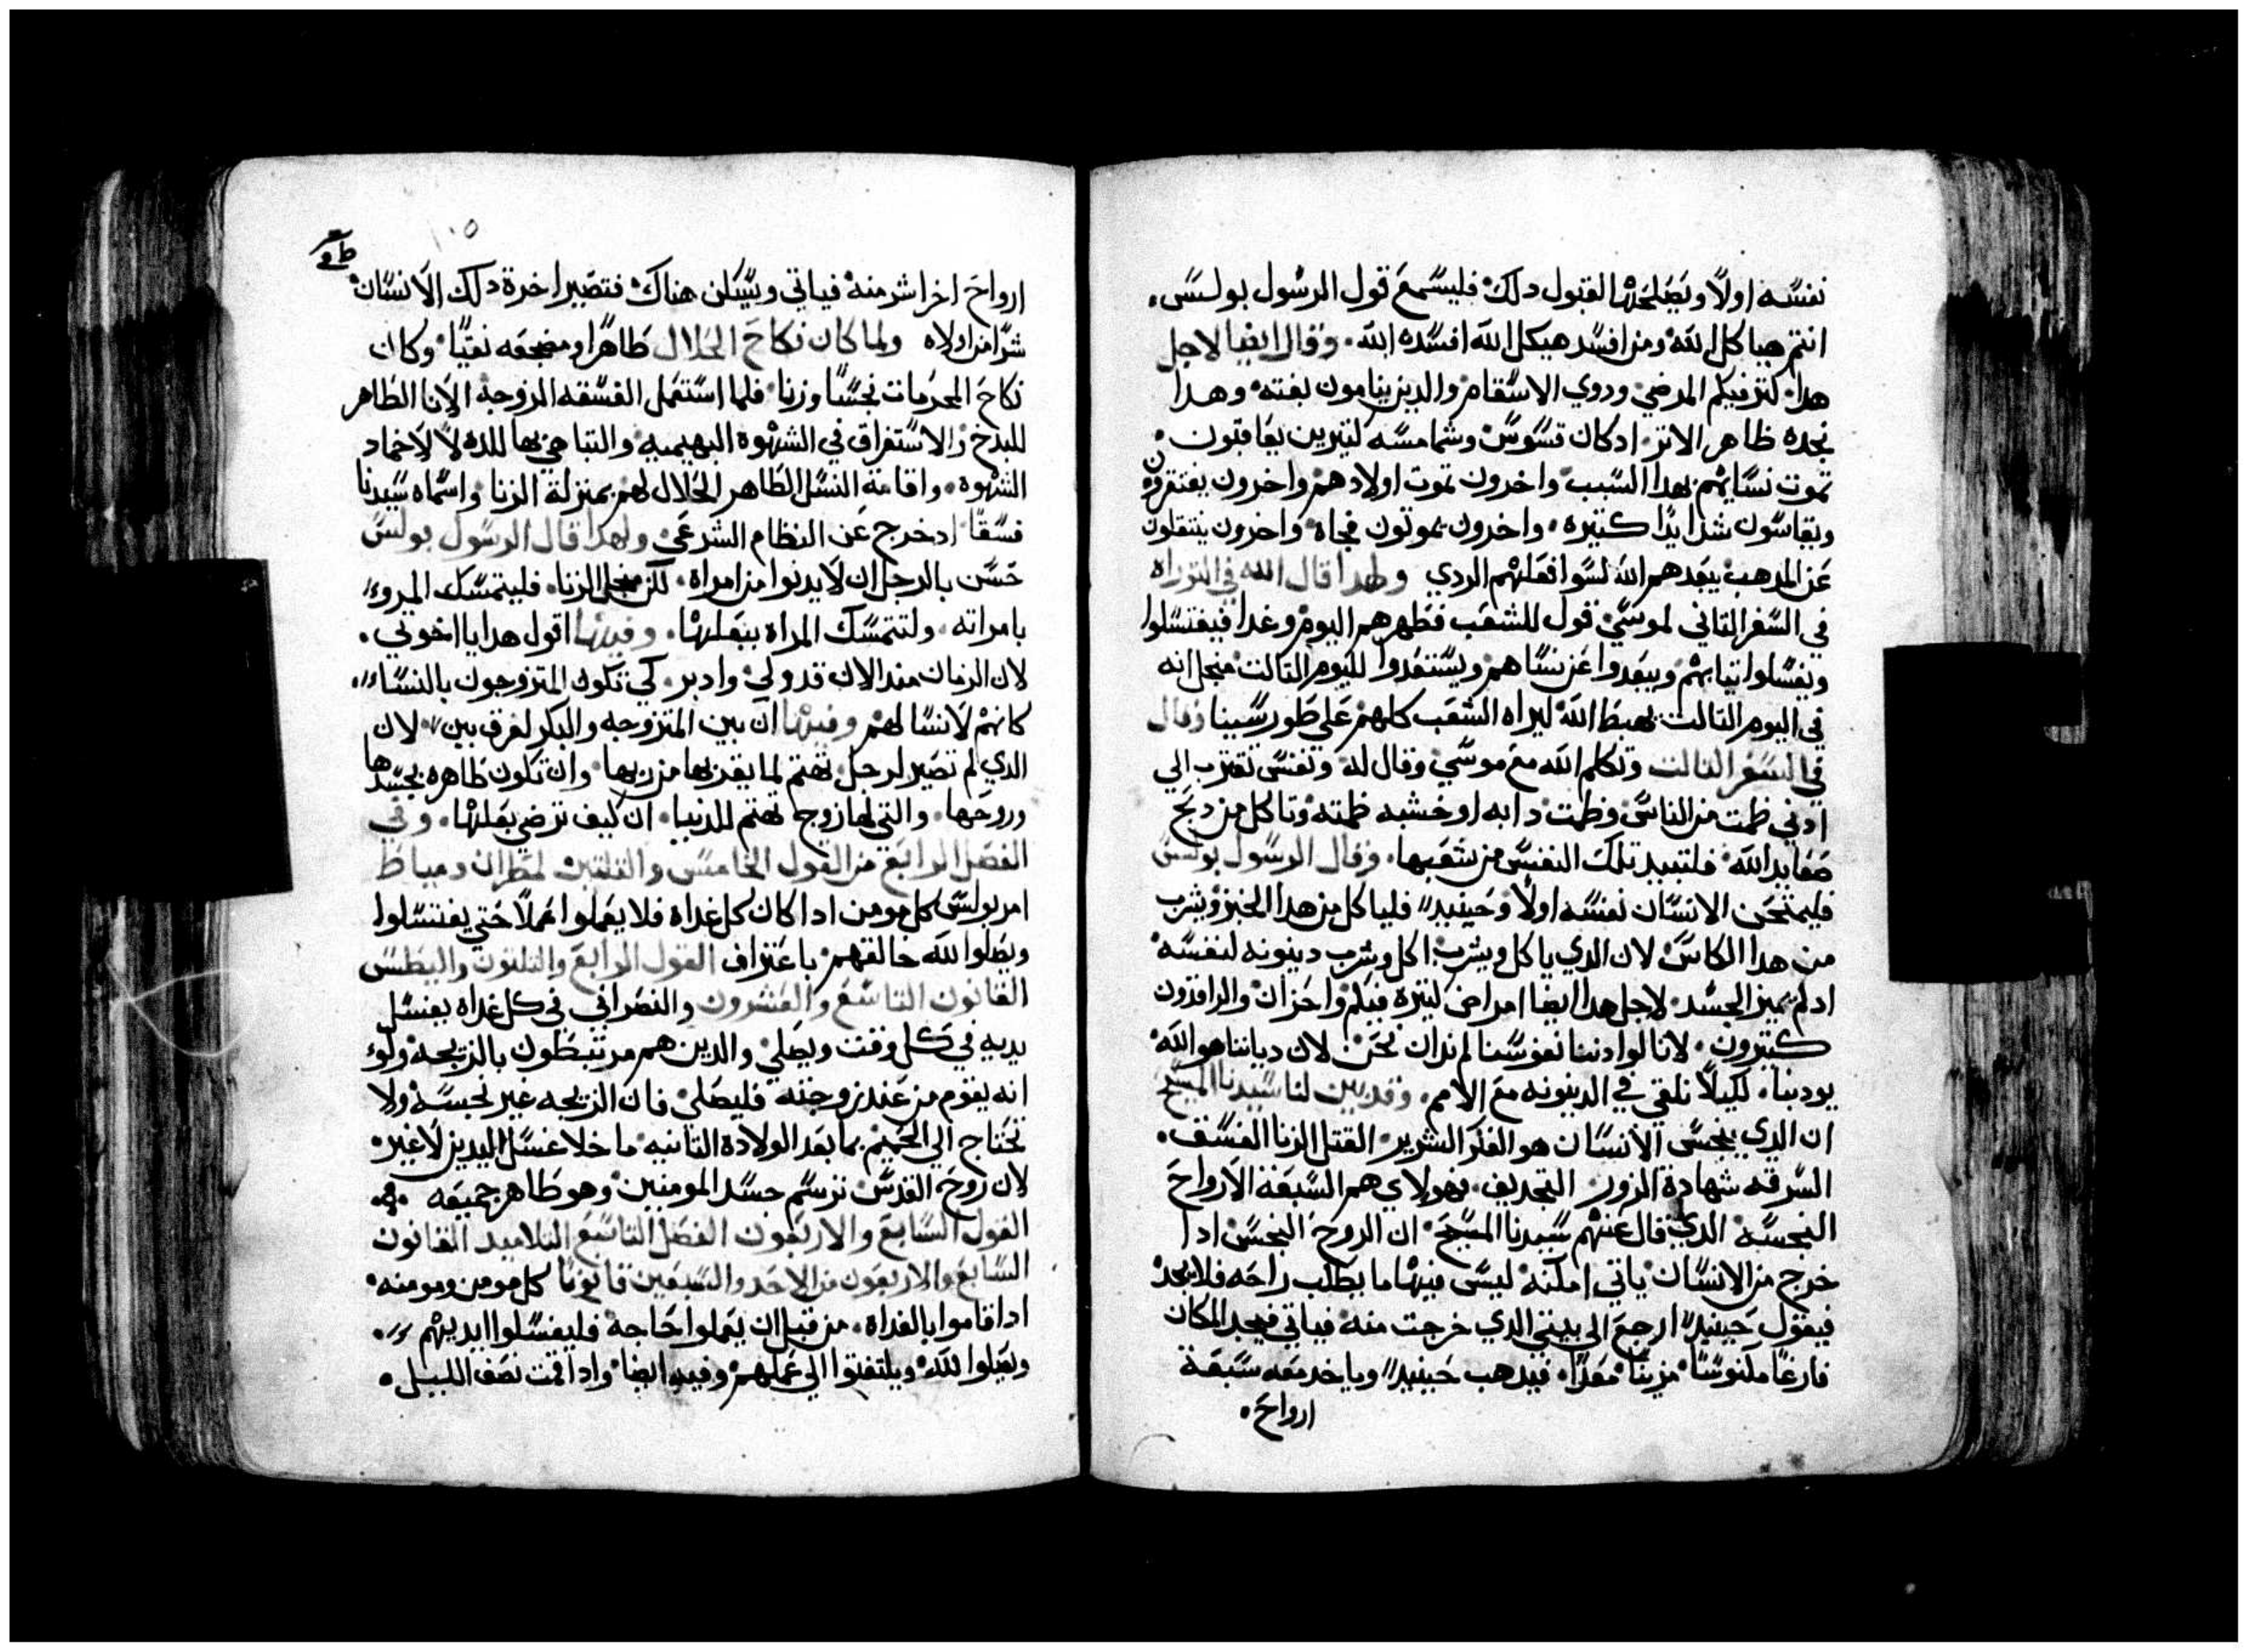 نفسه اولاً ويصلحها لقبول دلك فليسمع قول الرسول بولس
انتم هياكل الله ومن افسد هيكل الله افسده الله وقال ايضا لاجل
هدا كتر فيكم المرضي ودوي الاسقام والدين ينامون بغته وهدا
نجده ظاهر الاتر ادكان قسوس وشمامسه كتيرين يعاقبون
تموت نسايهم بهدا السبب واخرون تموت اولادهم واخرون يفتقرون
ويقاسون شدايدًا كتيره واخرون يموتون فجاه واخرون ينتقلون
عن المدهب يبعدهم الله لسوا فعلهم الردي ولهدا قال الله في التوراه
في السفر التاني لموسي قول للشعب فطهرهم اليوم وغدا فيغتسلوا
ويغسلوا تيابهم ويبعدوا عن نساهم ويستعدوا لليوم التالت منجل انه
في اليوم التالت يهبط الله ليراه الشعب كلهم علي طور سينا وقال
في السفر التالت وتكلم الله مع موسي وقال له ونفس تقترب الي
ادني طمت من الناس وطمت دابه او خشبه طمته وتاكل من دبح
صعايد الله فلتبيد تلك النفس من شعبها وقال الرسول بولس
فليمتحن الانسان نفسه اولاً وحينيد فلياكل من هدا الخبز ويشرب
من هدا الكاس لان الدي ياكل ويشرب اكل ويشرب دينونه لنفسه
ادلم يميز الجسد لاجل هدا ايضا امراض كتيرة فيكم واحزان والراقدون
كتيرون لانا لوا دننا نفوسنا لم ندان نحن لان دياننا هو الله
يودبنا لكيلاً نلقي في الدينونه مع الامم وقد بين لنا سيدنا المسيح
ان الدي ينجس الانسان هو الفكر الشرير القتل الزنا الفسق
السرقه شهادة الزور التجديف فهولاي هم السبعة الارواح
النجسه الدي قال عنهم سيدنا المسيح ان الروح النجس ادا
خرج من الانسان ياتي امكنه ليس فيها ما يطلب راحه فلا يجد
فيقول حينيد ارجع الي بيتي الدي خرجت منه فياتي فيجد المكان
فارغًا مكنوسًا مزينًا معدًا فيدهب حينيد وياخد معه سبعة
ارواح
١٠٥
ارواح اخر اشر منه فياتي ويسكن هناك فتصير اخرة دلك الانسان
شرًا من اولاه ولما كان نكاح الحلال طاهرًا ومضجعه نقيًا وكان
نكاح المحرمات نجسًا وزنا فلما استعمل الفسقه الزوجة الانا الطاهر
للبدخ والاستغراق في الشهوة البهيميه والتباهي بها للده لا لاخماد
الشهوة واقامة النسل الطاهر الحلال لهم بمنزلة الزنا واسماه سيدنا
فسقًا ادخرج عن النظام الشرعي ولهدا قال الرسول بولس
حسن بالرجل ان لا يدنوا من امراة لكن منجل الزنا فليتمسك المروء
بامراته ولتتمسك المراه ببعلها وفيها اقول هدا يا اخوتي
لان الزمان مند الان قد ولي وادبر كي تكون المتزوجون بالنساء
كانهم لا نسا لهم وفيها ان بين المتزوجه والبكر لفرق بين لان
الدي لم تصير لرجل تهتم لما يقربها من ربها وان تكون طاهره بجسدها
وروحها والتي لها زوج تهتم للدنيا ان كيف ترضي بعلها وفي
الفصل الرابع من القول الخامس والتلتين لمطران دمياط
امر بولس كل مومن ادا كان كل غداه فلا يعملوا عملاً حتي يغتسلوا
ويصلوا لله خالقهم باعتراف القول الرابع والتلتون والبطس
القانون التاسع والعشرون والنصراني في كل غداه يغسل
يديه في كل وقت ويصلي والدين هم مرتبطون بالزيجه ولوء
انه يقوم من عند زوجته فليصلي فان الزيجه غير نجسه ولا
تحتاج الي الحميم بما بعد الولادة التانيه ما خلا غسل اليدين لا غير
لان روح القدس ترسم جسد المومنين وهو طاهر جميعه
القول السابع والاربعون الفصل التاسع التلاميد القانون
السابع والاربعون من الاحد والسبعين قانونًا كل مومن ومومنه
ادا قاموا بالغداه من قبل ان يعملوا حاجة فليغسلوا ايديهم
ويصلوا لله ويلتفتوا الي عملهم وفيه ايضا وادا قمت نصف الليل